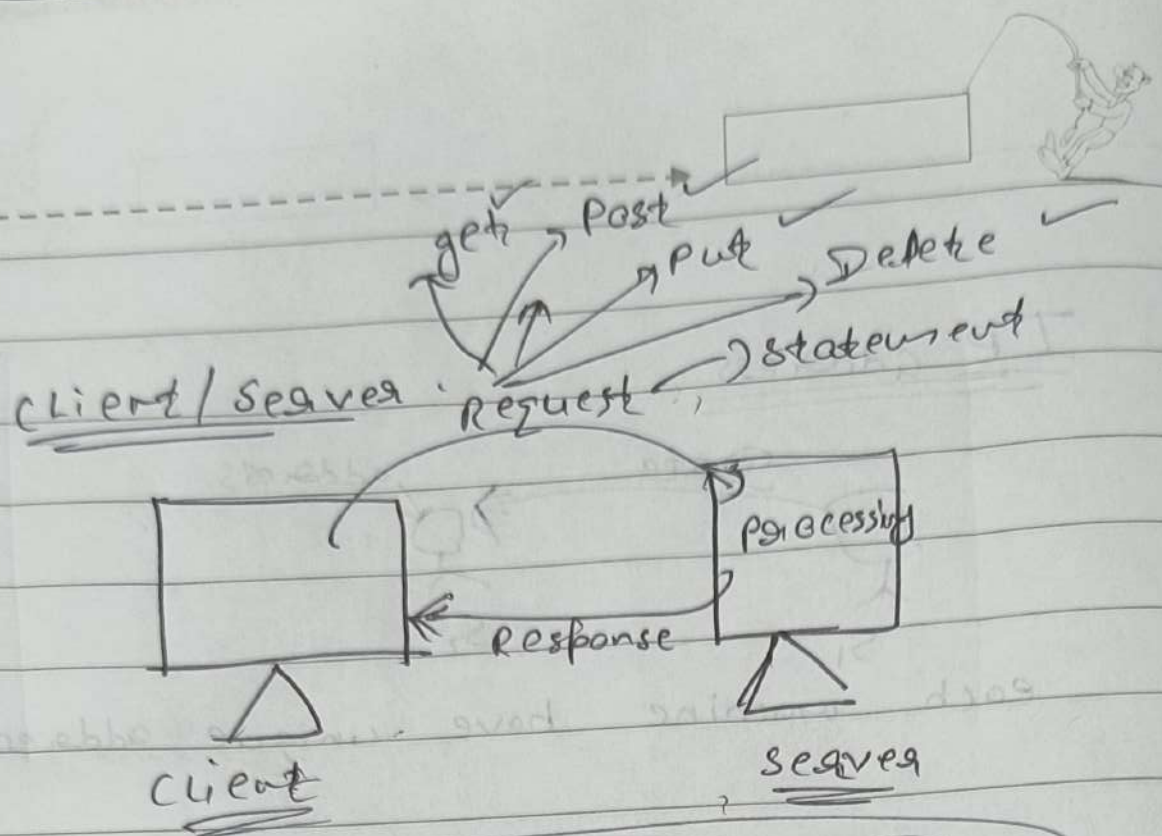 get
Post
Put
Delete
Statement
Client/Server
Request
Processing
Response
Client
Server